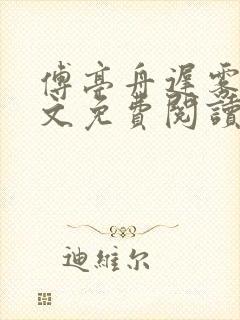 傅亭舟遲霧
文免費閱讀
迪維尔